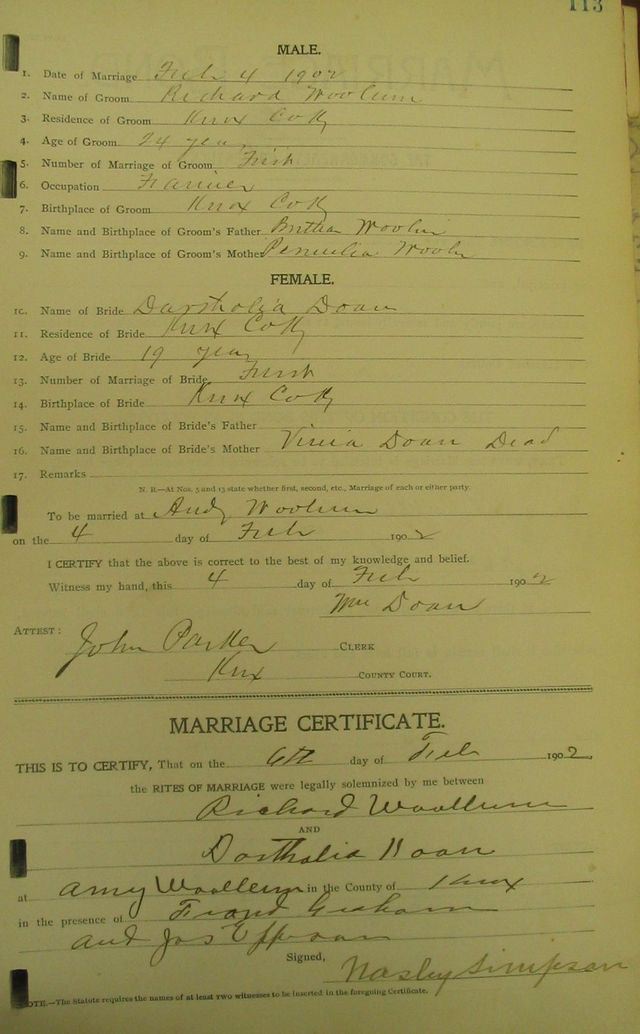 113
MALE.
1. Date of Marriage Feb 4 1902
2. Name of Groom Richard Woolum
3. Residence of Groom Knox Co Ky
4. Age of Groom 24 years
5. Number of Marriage of Groom First
6. Occupation Farmer
7. Birthplace of Groom Knox Co Ky
8. Name and Birthplace of Groom's Father Woolum
9. Name and Birthplace of Groom's Mother Woolum
FEMALE.
10. Name of Bride Darthalia Doan
11. Residence of Bride Knox Co Ky
12. Age of Bride 19 years
13. Number of Marriage of Bride First
14. Birthplace of Bride Knox Co Ky
15. Name and Birthplace of Bride's Father
16. Name and Birthplace of Bride's Mother Vinia Doan Dead
17. Remarks
N. B.—At Nos. 5 and 13 state whether first, second, etc., Marriage of each or either party.
To be married at Andy Woolum
on the 4 day of Feb 1902
I CERTIFY that the above is correct to the best of my knowledge and belief.
Witness my hand, this 4 day of Feb 1902
Wm Doan
ATTEST:
John Parker CLERK
Knox COUNTY COURT.
MARRIAGE CERTIFICATE.
THIS IS TO CERTIFY, That on the 6th day of Feb 1902,
the RITES OF MARRIAGE were legally solemnized by me between
Richard Woollum
AND
Darthalia Doan
at Woollum in the County of Knox
in the presence of Graham
and Jas
Signed, Simpson
NOTE.—The Statute requires the names of at least two witnesses to be inserted in the foregoing Certificate.